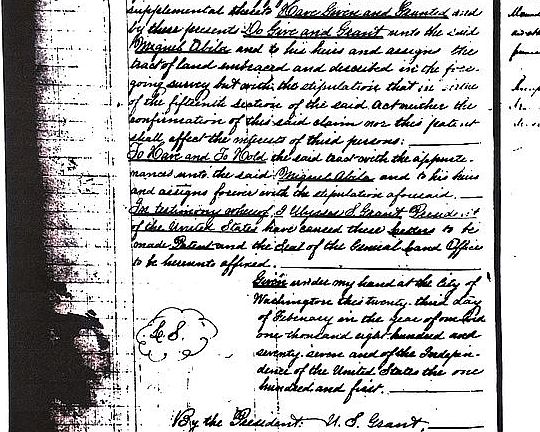 supplemental thereto Have Given and Granted and
by these presents Do Give and Grant unto the said
Miguel Abila and to his heirs and assigns the
tract of land embraced and described in the fore-
going survey but with the stipulation that in virtue
of the fifteenth section of the said Act neither the
confirmation of this said claim nor this patent
shall affect the interests of third persons:
To Have and To Hold the said tract with the appurte-
nances unto the said Miguel Abila and to his heirs
and assigns forever with the stipulation aforesaid.
In testimony whereof I Ulysses S. Grant, President
of the United States have caused these Letters to be
made Patent and the Seal of the General Land Office
to be hereunto affixed.
Given under my hand at the City of
Washington this twenty-third day
of February in the year of our Lord
one thousand eight hundred and
seventy-seven and of the Indepen-
dence of the United States the one
hundred and first.
L.S.
By the President: U. S. Grant.